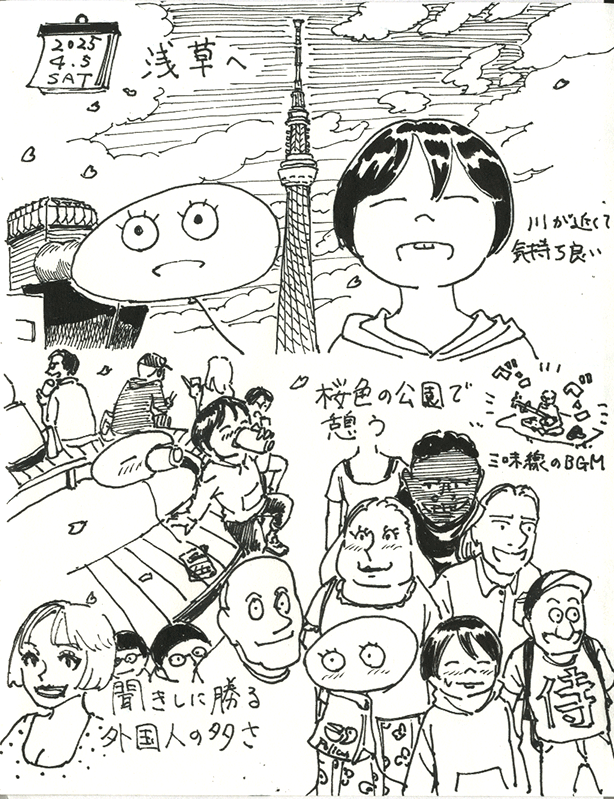 2025
4.5
SAT
浅草へ
川が近くて
気持ち良い
桜色の公園で
憩う
ベン
ベン
三味線のBGM
聞きしに勝る
外国人の多さ
侍
POLICE